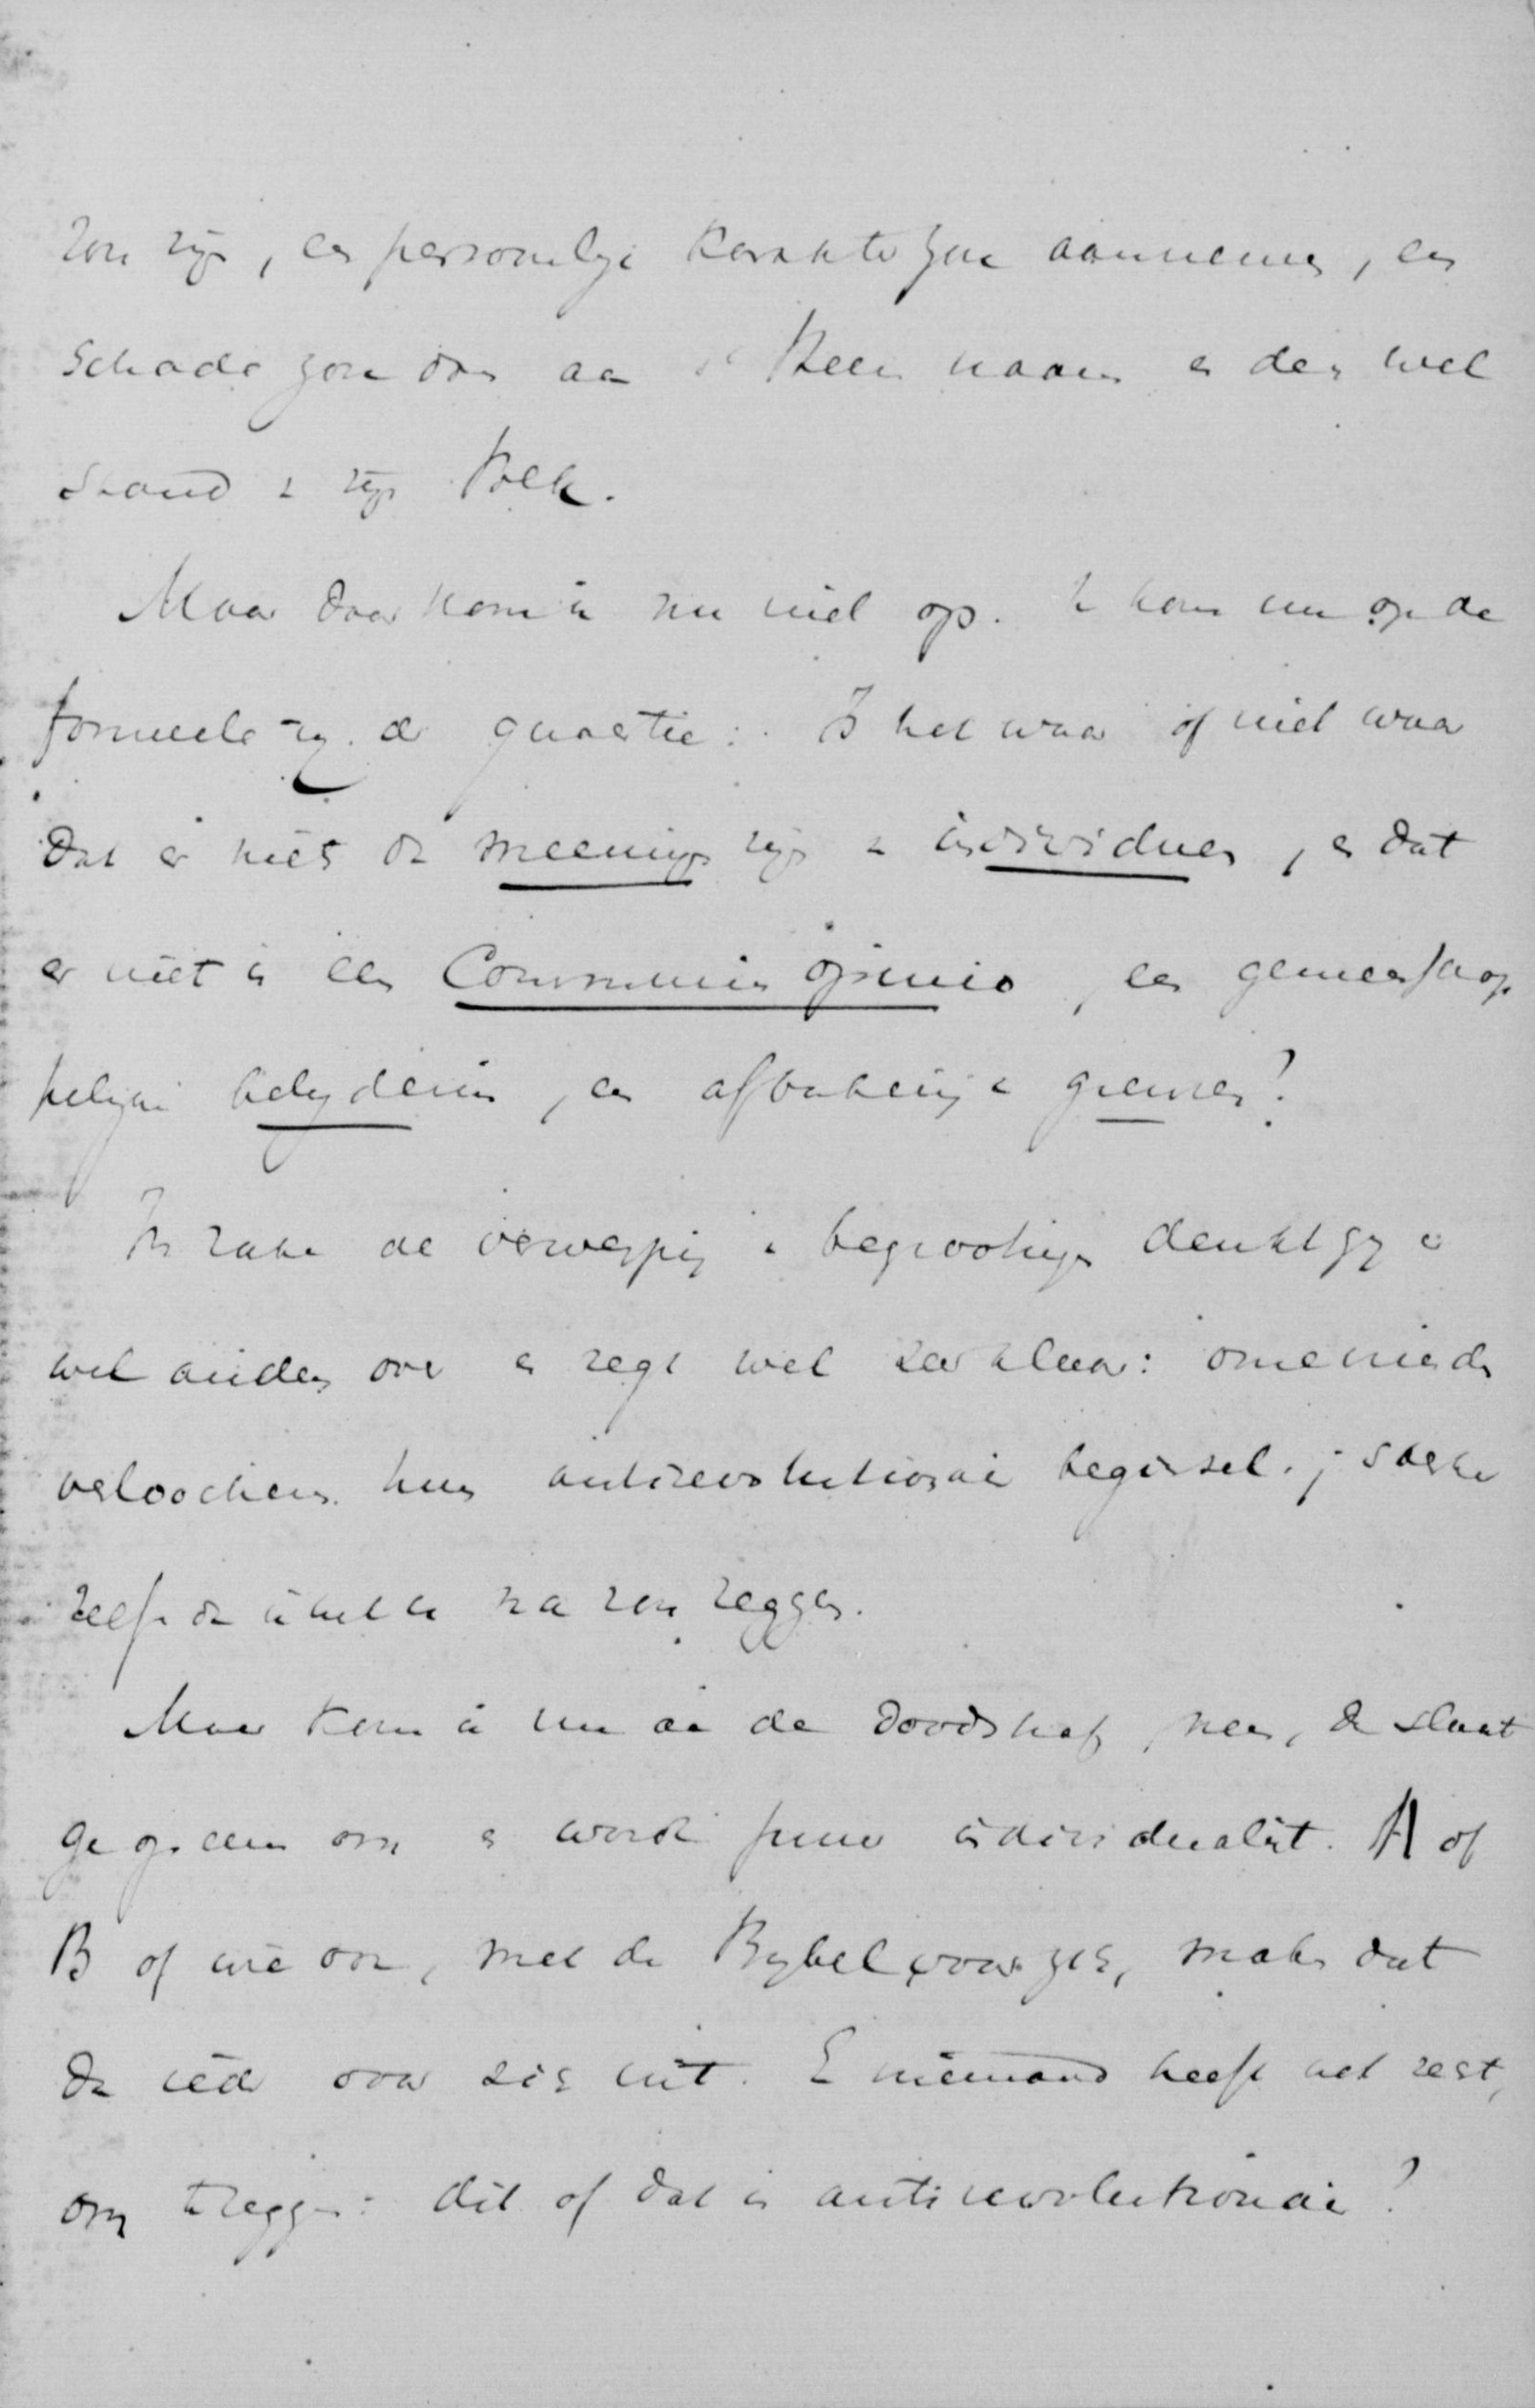 zou zijn, een persoonlijk karakter zou aannemen, en
schade zou doen aan 's Heeren naam en den wel
stand v zijn Volk.
Maar daar kom ik nu niet op. Ik kom nu op de
formeele zij. der quaestie: Is het waar of niet waar
dat er niets dan meeningen zijn v individuen, en dat
er niet is een Communis opinio, een gemeenschap
pelijke belijdenis, een afbakening v grenzen?
In zake de verwerping v begrootingen denkt gij er
wel anders over en zegt wel zeer klaar: omeniede
verloochenen hun antirevolutionair beginsel.; sterker
zelfs dan ik het u na zou zeggen.
Maar kom ik nu aan de doodstraf, neen, dan slaat
ge op eens om en wordt puur individualist. A of
B of wie ook, met de Bijbel voor zich, maken dat
dan ieder voor zich uit. En niemand heeft het recht,
om te zeggen: dit of dat is antirevolutionair?